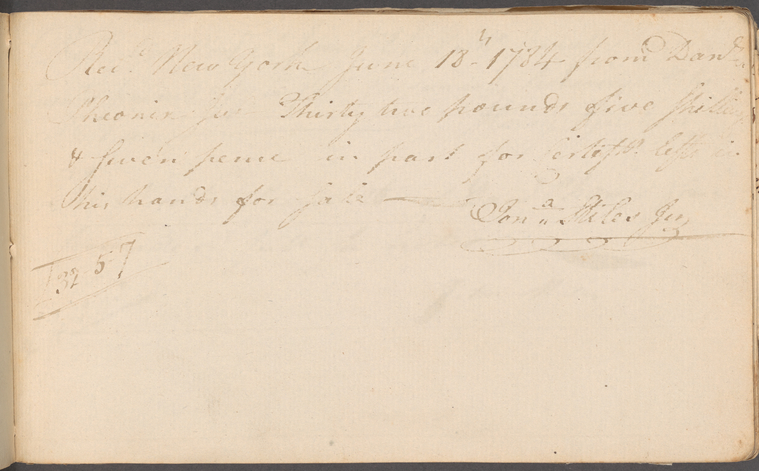 Recd. New York June 18th 1784 from Danl.
Phoenix jur Thirty two pounds five shillings
& Seven pence in part for certifts. left in
his hands for Sale
Jona. Stiles Jur
£32-5-7